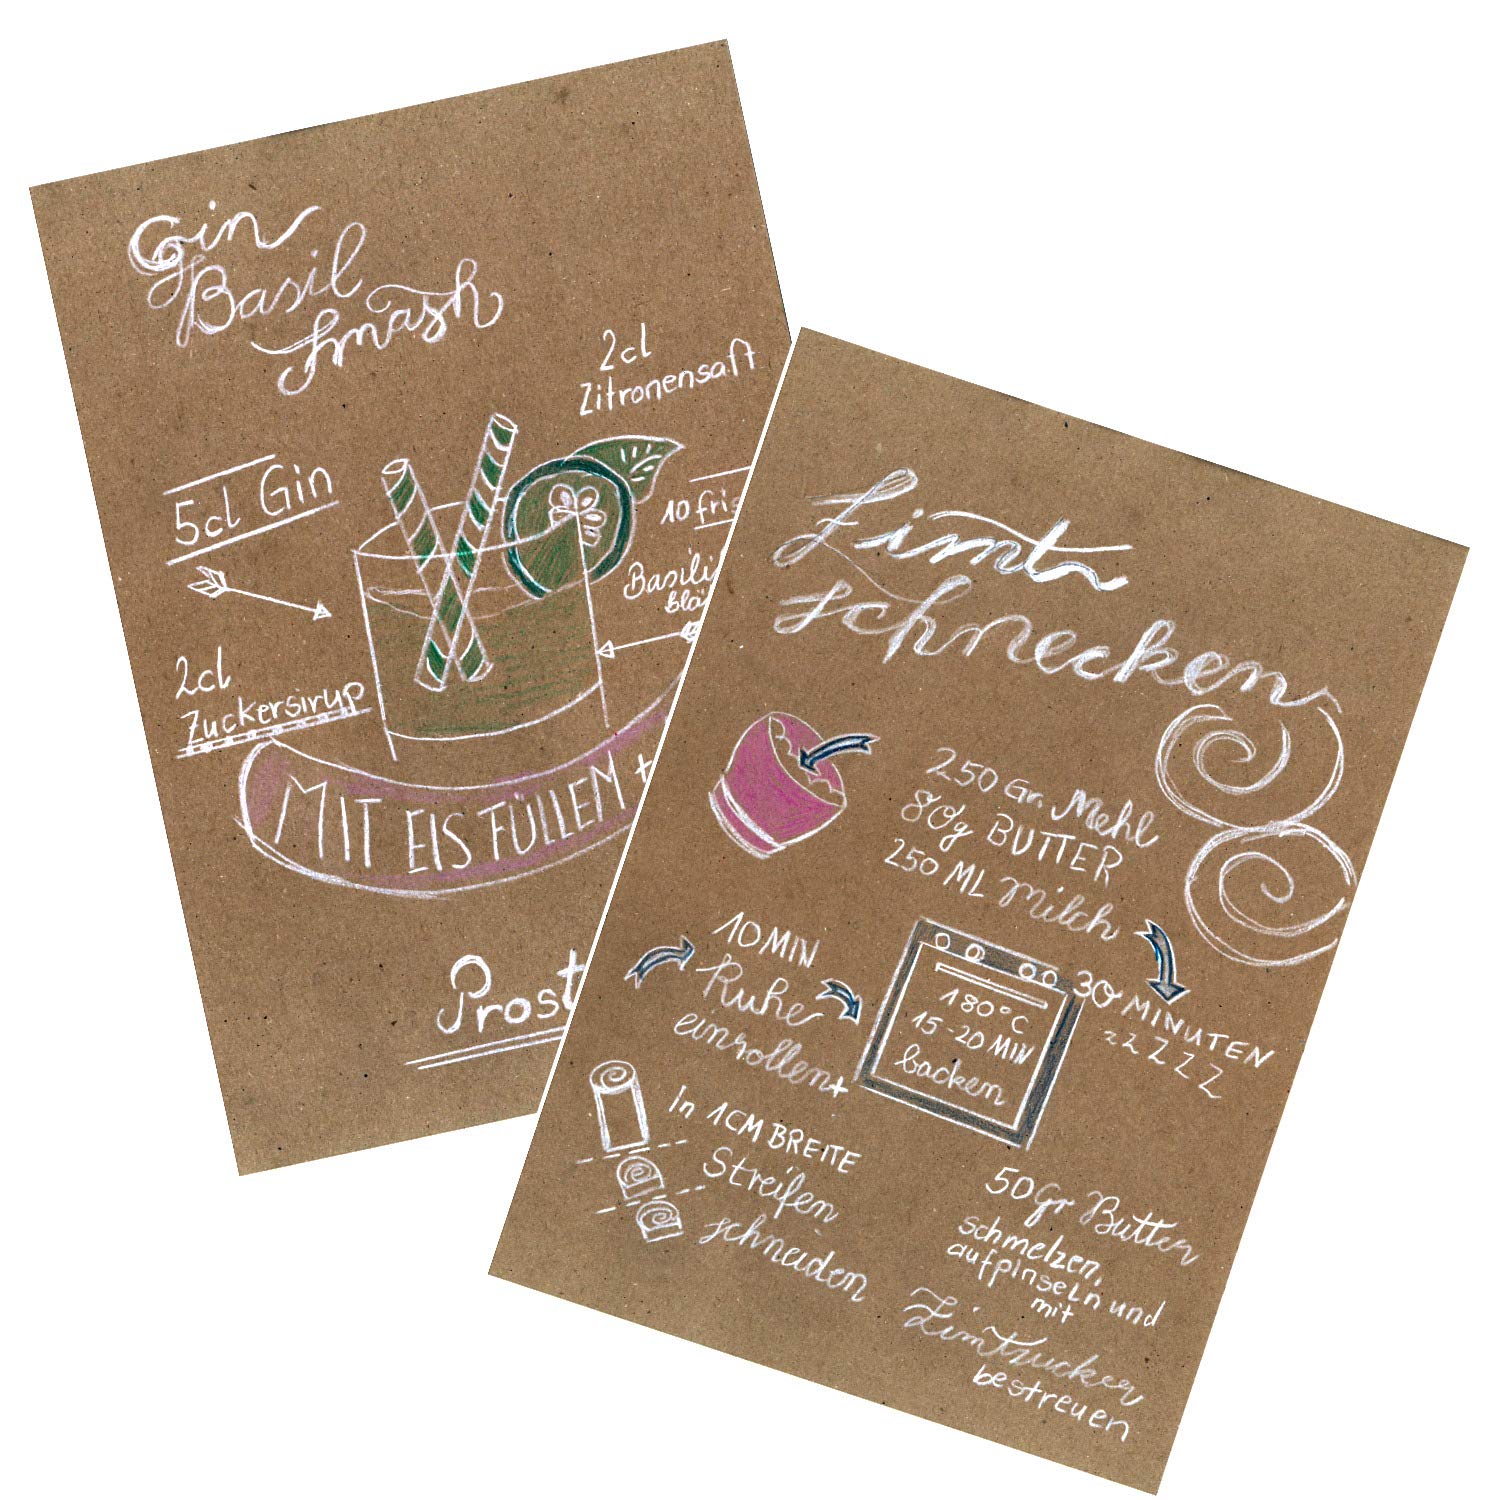 Gin
Basil
Smash
2cl
Zitronensaft
5cl Gin
10 fris
Basili
blä
2cl
Zuckersirup
MIT EIS FÜLLEN +
Prost
Zimt
schnecken
250 Gr. Mehl
80g BUTTER
250 ML Milch
30 MINUTEN
zzZZZ
10 MIN
Ruhe
einrollen +
In 1CM BREITE
Streifen
schneiden
180°C
15-20 MIN
backen
50gr Butter
schmelzen,
aufpinseln und
mit
Zimtzucker
bestreuen